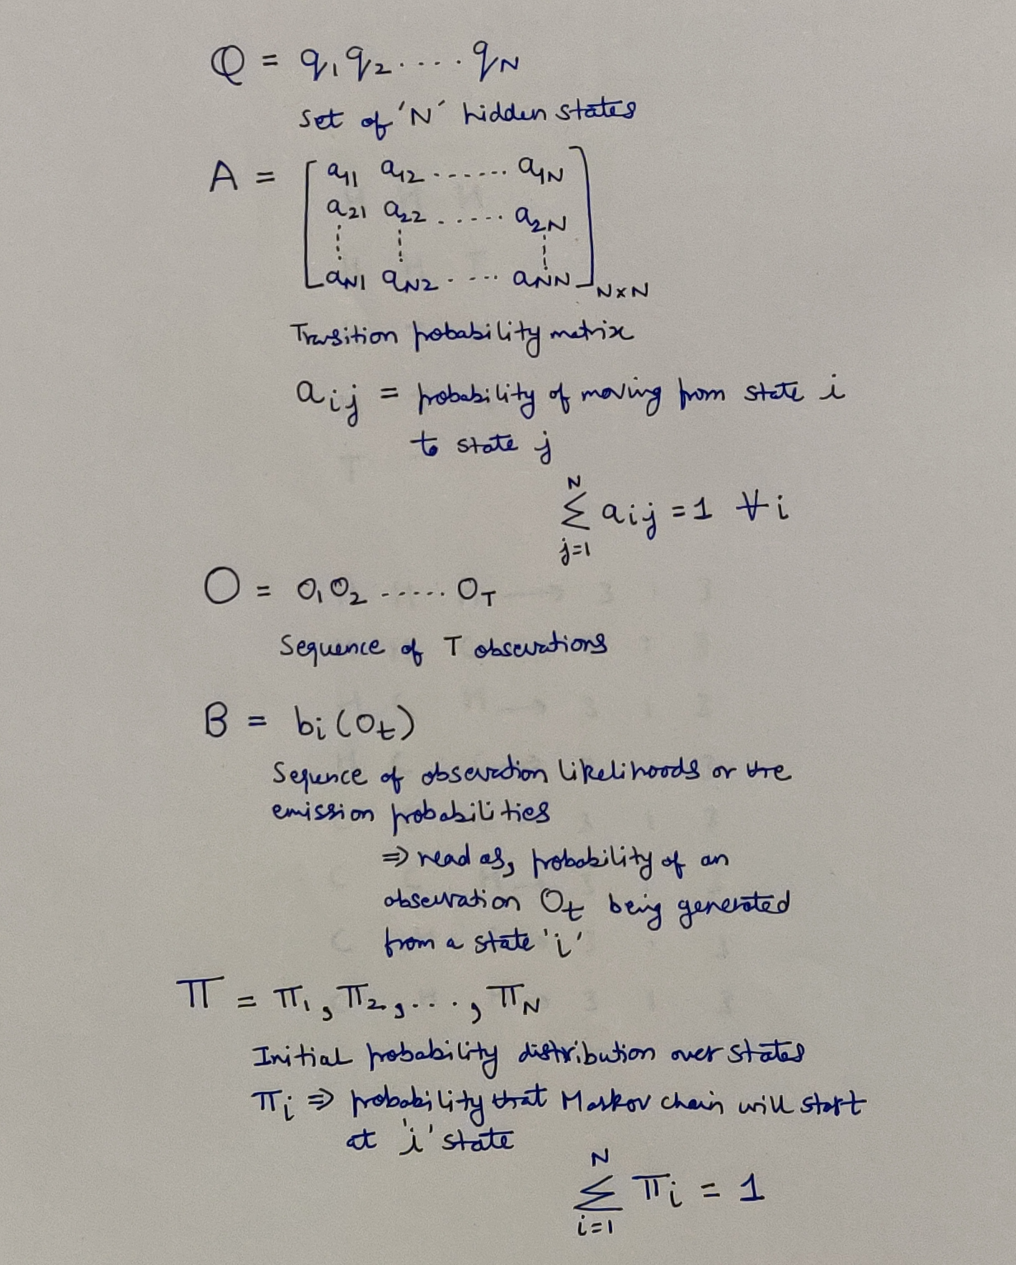 Q = q₁ q₂ .... q_N
Set of 'N' hidden states
A = [ a₁₁ a₁₂ ....... a₁N
a₂₁ a₂₂ ..... a₂N
⋮ ⋮ ⋮
a_N1 a_N2 .... a_NN ] N×N
Transition probability matrix
aᵢⱼ = probability of moving from state i
to state j
∑_{j=1}^{N} aᵢⱼ = 1 ∀ i
O = O₁ O₂ ...... O_T
Sequence of T observations
B = bᵢ(O_t)
Sequence of observation likelihoods or the
emission probabilities
⇒ read as, probability of an
observation O_t being generated
from a state 'i'
π = π₁, π₂, ...., π_N
Initial probability distribution over states
πᵢ ⇒ probability that Markov chain will start
at 'i' state
∑_{i=1}^{N} πᵢ = 1